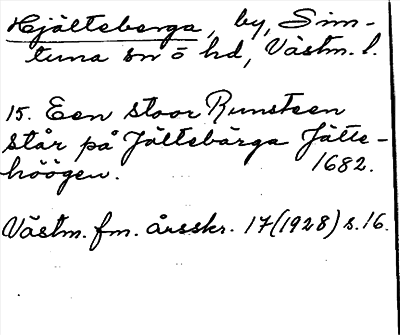 Hjälteberga, by, Sim-
tuna sn o hd, Västm. l.
15. Een stoor Runsteen
står på Jältebärga Jätte-
höögen. 1682.
Västm. fm. årsskr. 17 (1928) s. 16.